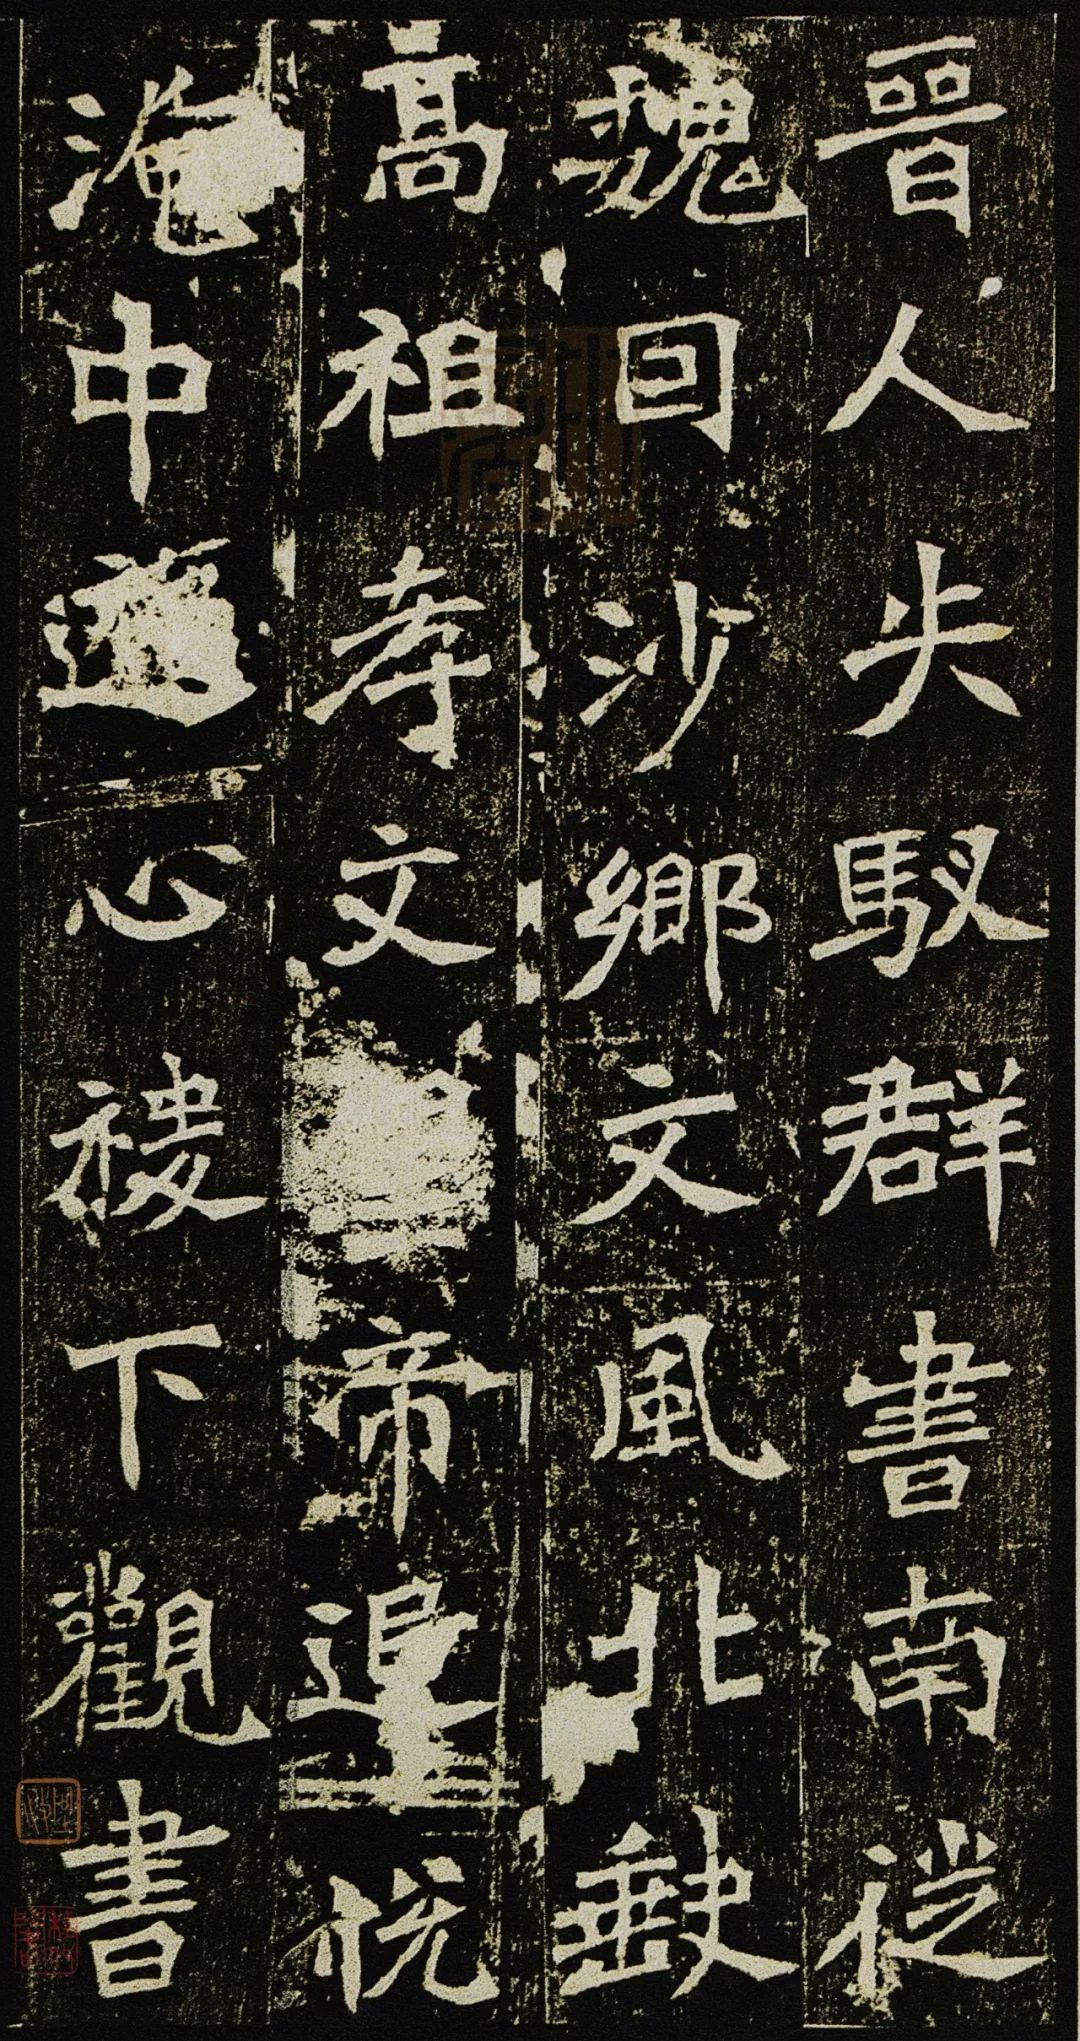 晉人失馭群書南徙
魏囙沙鄉文風北缺
髙祖孝文帝追悅
淹中遊心稷下觀書